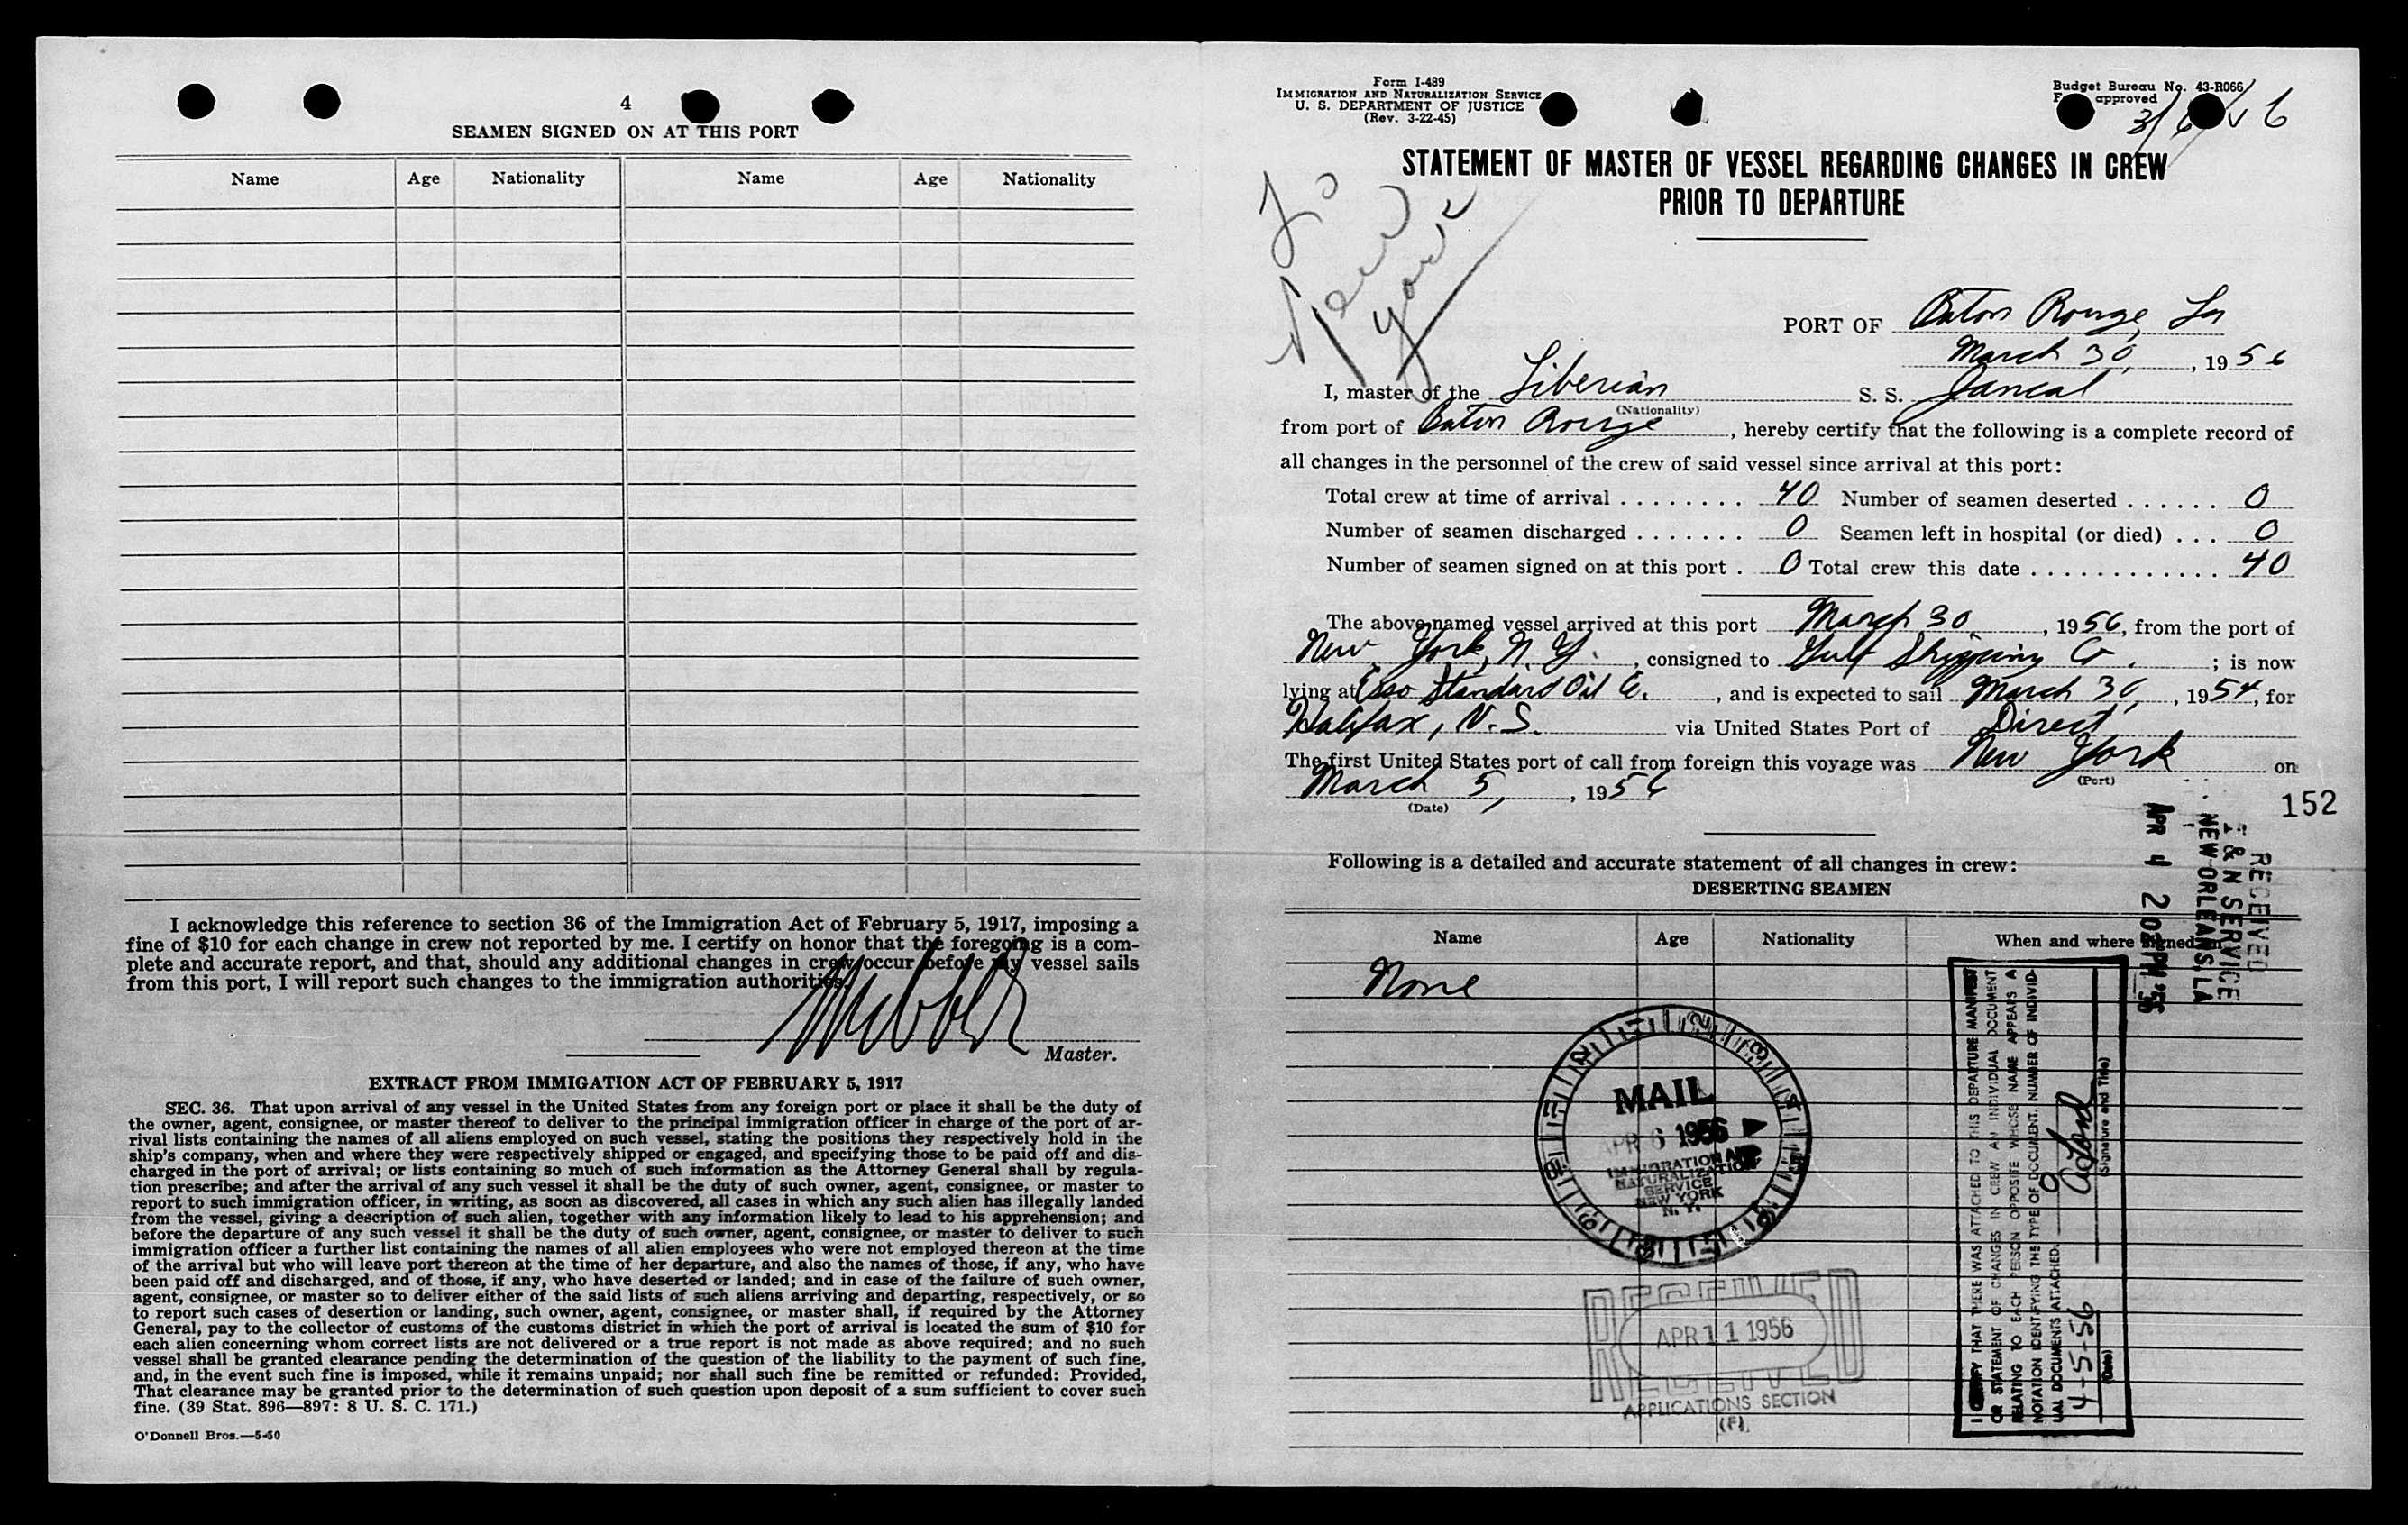 4
SEAMEN SIGNED ON AT THIS PORT
Name Age Nationality Name Age Nationality
I acknowledge this reference to section 36 of the Immigration Act of February 5, 1917, imposing a
fine of $10 for each change in crew not reported by me. I certify on honor that the foregoing is a com-
plete and accurate report, and that, should any additional changes in crew occur before my vessel sails
from this port, I will report such changes to the immigration authorities.
Master.
EXTRACT FROM IMMIGATION ACT OF FEBRUARY 5, 1917
SEC. 36. That upon arrival of any vessel in the United States from any foreign port or place it shall be the duty of
the owner, agent, consignee, or master thereof to deliver to the principal immigration officer in charge of the port of ar-
rival lists containing the names of all aliens employed on such vessel, stating the positions they respectively hold in the
ship's company, when and where they were respectively shipped or engaged, and specifying those to be paid off and dis-
charged in the port of arrival; or lists containing so much of such information as the Attorney General shall by regula-
tion prescribe; and after the arrival of any such vessel it shall be the duty of such owner, agent, consignee, or master to
report to such immigration officer, in writing, as soon as discovered, all cases in which any such alien has illegally landed
from the vessel, giving a description of such alien, together with any information likely to lead to his apprehension; and
before the departure of any such vessel it shall be the duty of such owner, agent, consignee, or master to deliver to such
immigration officer a further list containing the names of all alien employees who were not employed thereon at the time
of the arrival but who will leave port thereon at the time of her departure, and also the names of those, if any, who have
been paid off and discharged, and of those, if any, who have deserted or landed; and in case of the failure of such owner,
agent, consignee, or master so to deliver either of the said lists of such aliens arriving and departing, respectively, or so
to report such cases of desertion or landing, such owner, agent, consignee, or master shall, if required by the Attorney
General, pay to the collector of customs of the customs district in which the port of arrival is located the sum of $10 for
each alien concerning whom correct lists are not delivered or a true report is not made as above required; and no such
vessel shall be granted clearance pending the determination of the question of the liability to the payment of such fine,
and, in the event such fine is imposed, while it remains unpaid; nor shall such fine be remitted or refunded: Provided,
That clearance may be granted prior to the determination of such question upon deposit of a sum sufficient to cover such
fine. (39 Stat. 896—897: 8 U. S. C. 171.)
O'Donnell Bros.—5-50
Form I-489
IMMIGRATION AND NATURALIZATION SERVICE
U. S. DEPARTMENT OF JUSTICE
(Rev. 3-22-45)
Budget Bureau No. 43-R066
approved
STATEMENT OF MASTER OF VESSEL REGARDING CHANGES IN CREW
PRIOR TO DEPARTURE
To
New
York
PORT OF Baton Rouge, La
March 30, , 1956
I, master of the Liberian S. S. Jancal
(Nationality)
from port of Baton Rouge , hereby certify that the following is a complete record of
all changes in the personnel of the crew of said vessel since arrival at this port:
Total crew at time of arrival ........ 40 Number of seamen deserted ...... 0
Number of seamen discharged ....... 0 Seamen left in hospital (or died) ... 0
Number of seamen signed on at this port . 0 Total crew this date ............ 40
The above-named vessel arrived at this port March 30, , 1956, from the port of
New York, N. Y. , consigned to Gulf Shipping Co. ; is now
lying at Esso Standard Oil Co. , and is expected to sail March 30, , 1954, for
Halifax, N. S. via United States Port of Direct
The first United States port of call from foreign this voyage was New York on
(Port)
March 5, , 1956
(Date)
152
RECEIVED
I & N SERVICE
NEW ORLEANS, LA
APR 4 2 02 PM '56
Following is a detailed and accurate statement of all changes in crew:
DESERTING SEAMEN
Name Age Nationality When and where signed on
None
MAIL
APR 6 1956
IMMIGRATION AND
NATURALIZATION
SERVICE
NEW YORK
N. Y.
RECEIVED
APR 11 1956
APPLICATIONS SECTION
(F)
I CERTIFY THAT THERE WAS ATTACHED TO THIS DEPARTURE MANIFEST
OR STATEMENT OF CHANGES IN CREW AN INDIVIDUAL DOCUMENT
RELATING TO EACH PERSON OPPOSITE WHOSE NAME APPEARS A
NOTATION IDENTIFYING THE TYPE OF DOCUMENT. NUMBER OF INDIVID-
UAL DOCUMENTS ATTACHED. 0
4-5-56
(Date) (Signature and Title)